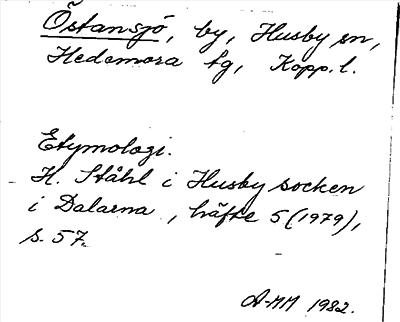 Östansjö, by, Husby sn,
Hedemora tg, Kopp. l.
Etymologi.
H. Ståhl i Husby socken
i Dalarna, häfte 5 (1979),
s. 57.
A-MM 1982.